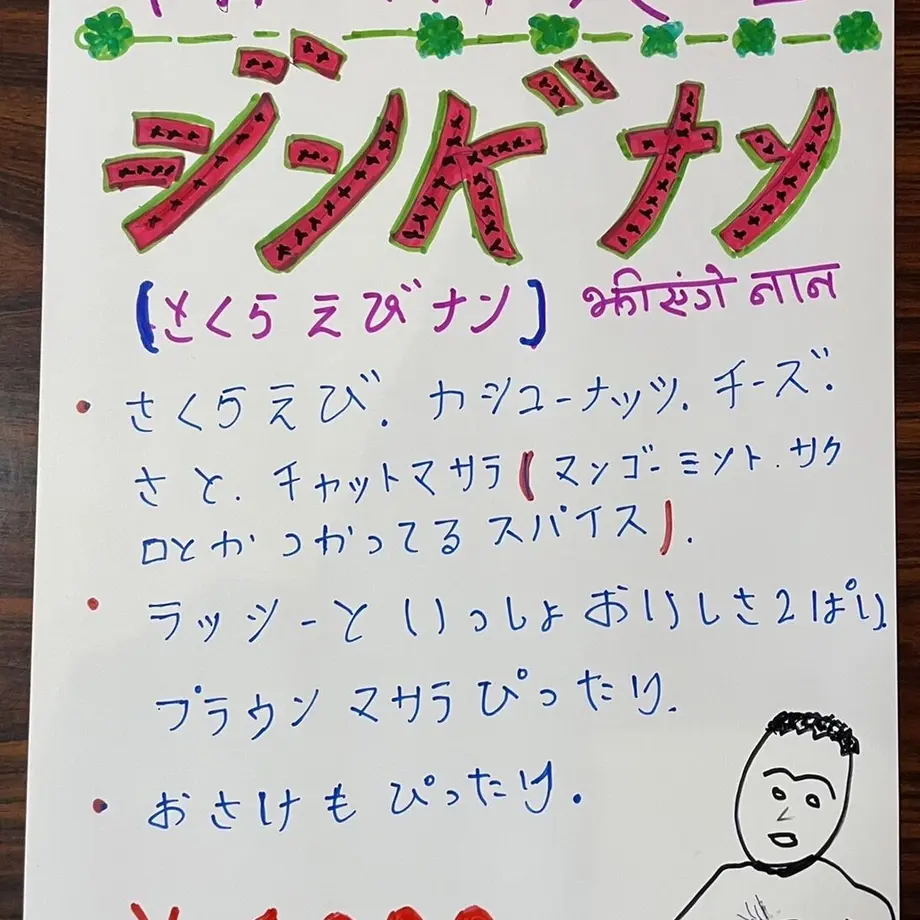 ジンゲナン
[さくらえびナン] झींगे नान
• さくらえび. カシューナッツ. チーズ.
さと. チャットマサラ(マンゴーミント.サク
ロとかつかってるスパイス).
• ラッシーといっしょおいしさ2ぱい
プラウンマサラぴったり.
• おさけもぴったり.